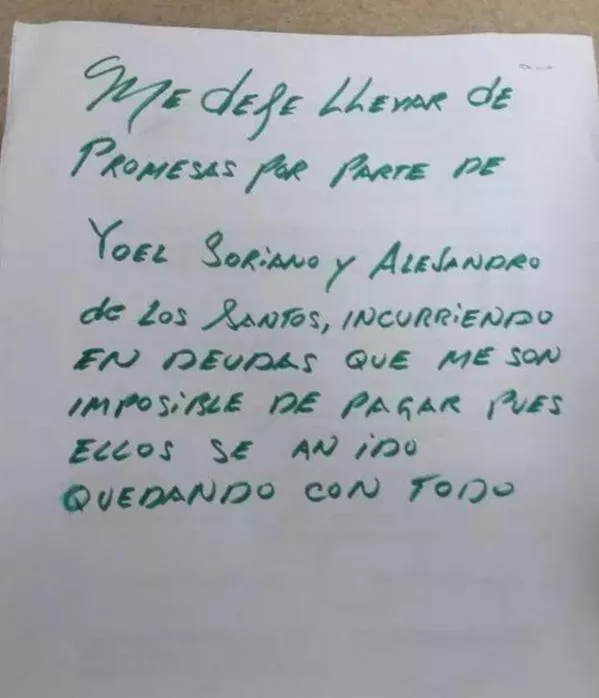 ME DEJE LLEVAR DE
PROMESAS POR PARTE DE
YOEL SORIANO Y ALEJANDRO
de LOS SANTOS, INCURRIENDO
EN DEUDAS QUE ME SON
IMPOSIBLE DE PAGAR PUES
ELLOS SE AN IDO
QUEDANDO CON TODO